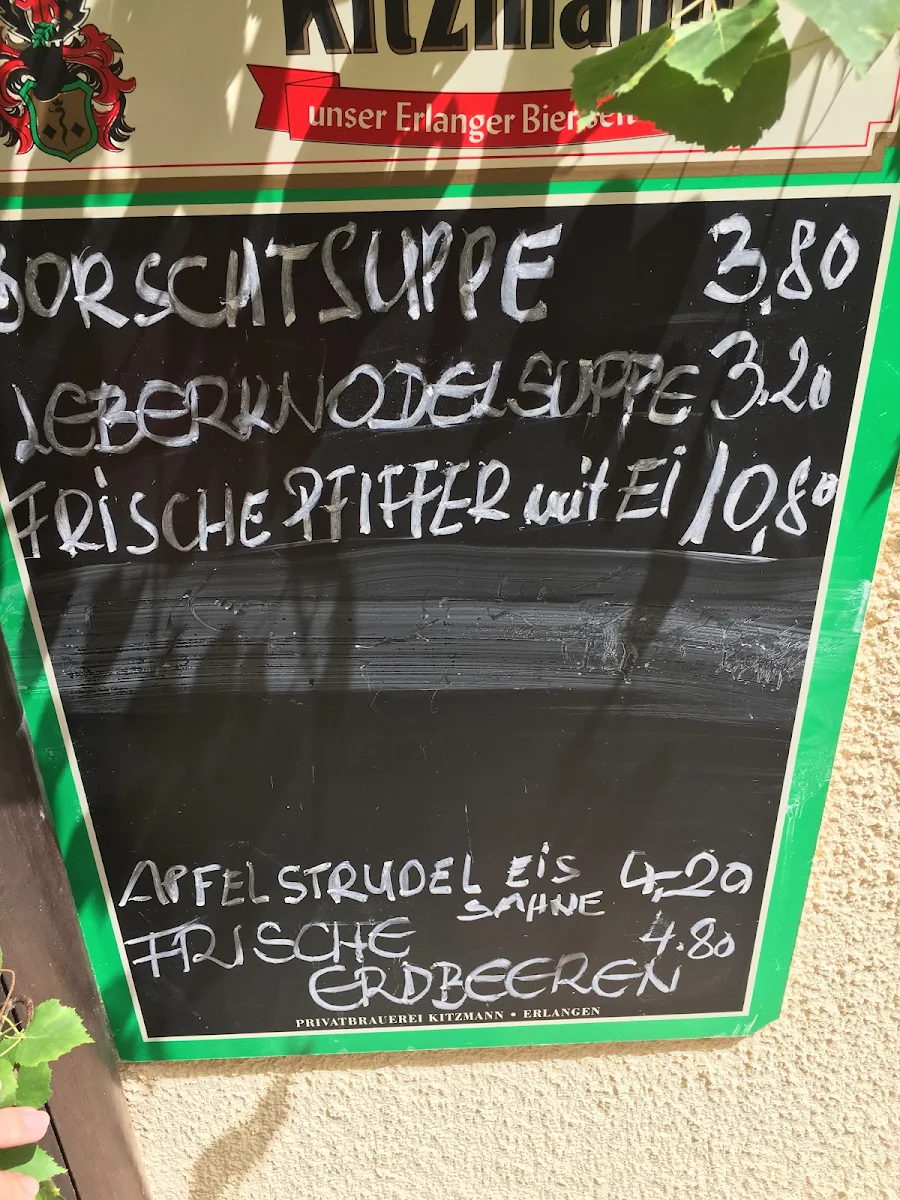 Kitzmann
unser Erlanger Bier seit
BORSCHTSUPPE 3,80
LEBERKNODELSUPPE 3.20
FRISCHE PFIFFER mit Ei 10,80
APFELSTRUDEL EIS 4,20
SAHNE
FRISCHE 4.80
ERDBEEREN
PRIVATBRAUEREI KITZMANN • ERLANGEN